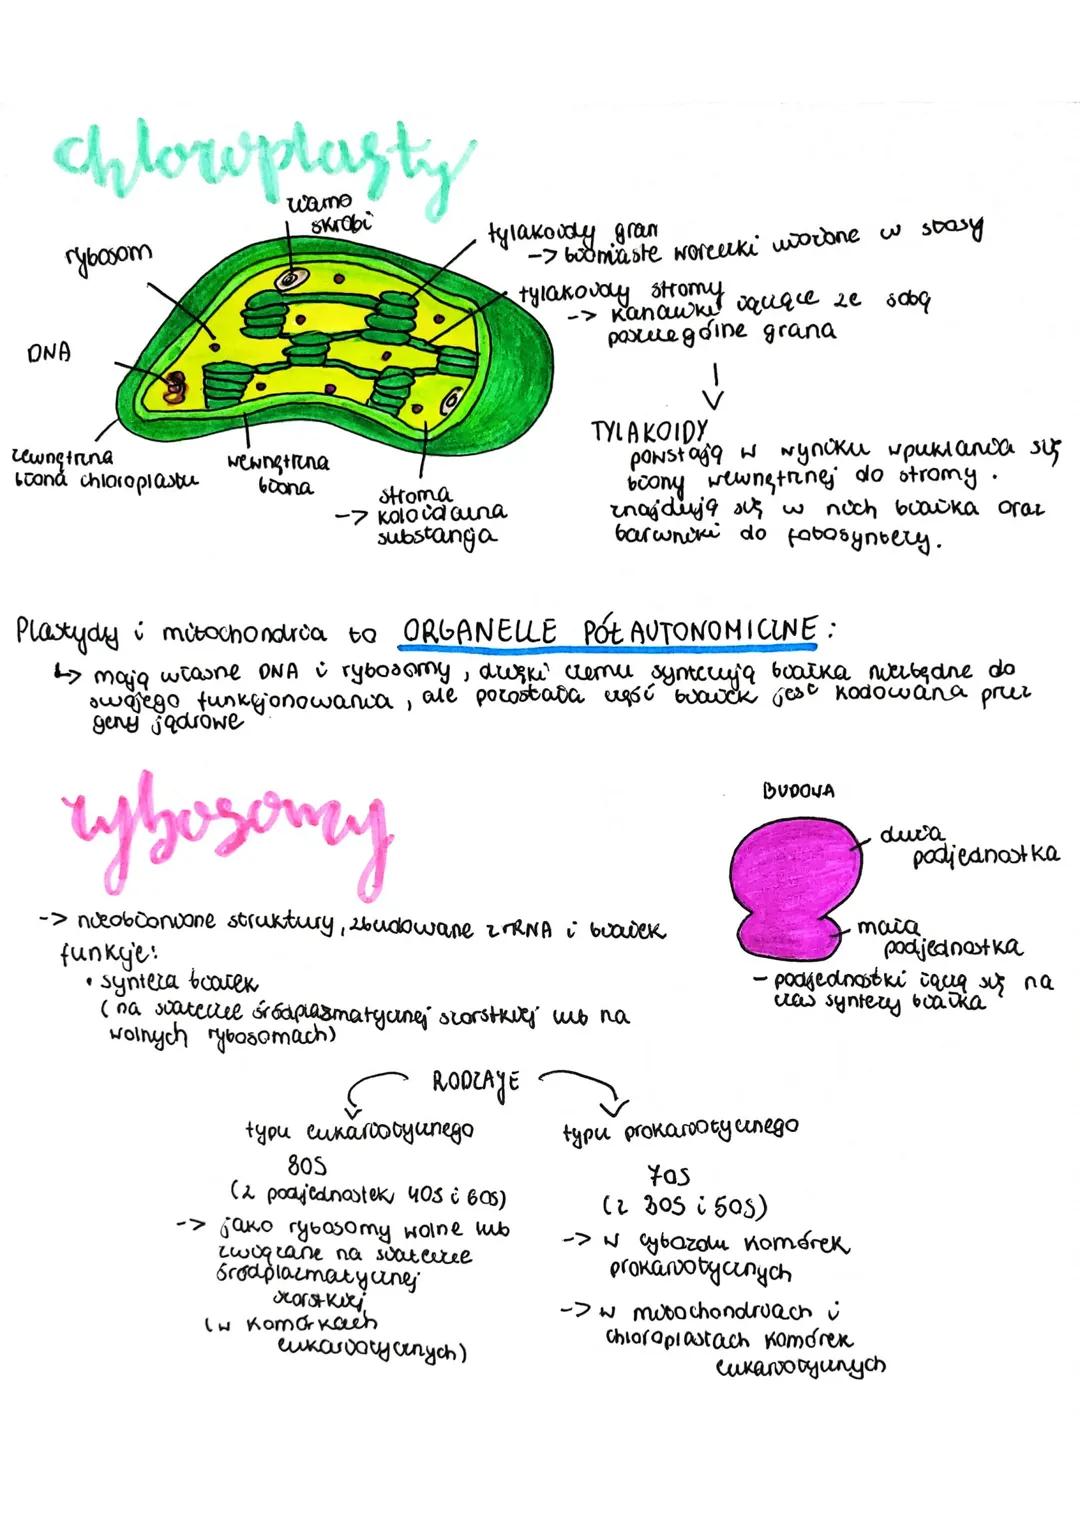 chloroplasty
ziarno
skrobi
rybosom
DNA
zewnętrzna
błona chloroplastu
wewnętrzna
błona
stroma
-> koloidalna
substancja
tylakoidy gran
-> błoniaste woreczki ułożone w stosy
tylakoidy stromy
-> kanaliki łączące ze sobą
poszczególne grana
TYLAKOIDY
powstają w wyniku wpuklania się
błony wewnętrznej do stromy.
znajdują się w nich białka oraz
barwniki do fotosyntezy.
Plastydy i mitochondria to ORGANELLE PÓŁAUTONOMICZNE:
↳ mają własne DNA i rybosomy, dzięki czemu syntezują białka niezbędne do
swojego funkcjonowania, ale pozostała część białek jest kodowana przez
geny jądrowe
rybosomy
-> nieobłonione struktury, zbudowane z rRNA i białek
funkcje:
• synteza białek
(na siateczce śródplazmatycznej szorstkiej lub na
wolnych rybosomach)
BUDOWA
duża
podjednostka
mała
podjednostka
- podjednostki łączą się na
czas syntezy białka
RODZAJE
typu eukariotycznego
80S
(2 podjednostek 40S i 60S)
-> jako rybosomy wolne lub
związane na siateczce
śródplazmatycznej
szorstkiej
(w komórkach
eukariotycznych)
typu prokariotycznego
70S
(z 30S i 50S)
-> w cytozolu komórek
prokariotycznych
-> w mitochondriach i
chloroplastach komórek
eukariotycznych